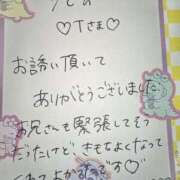 ♡Tさま♡
お誘い頂いて
ありがとうございました
お兄さんも緊張してそう
だったけど きせなよくなって
くれてよかったです♡